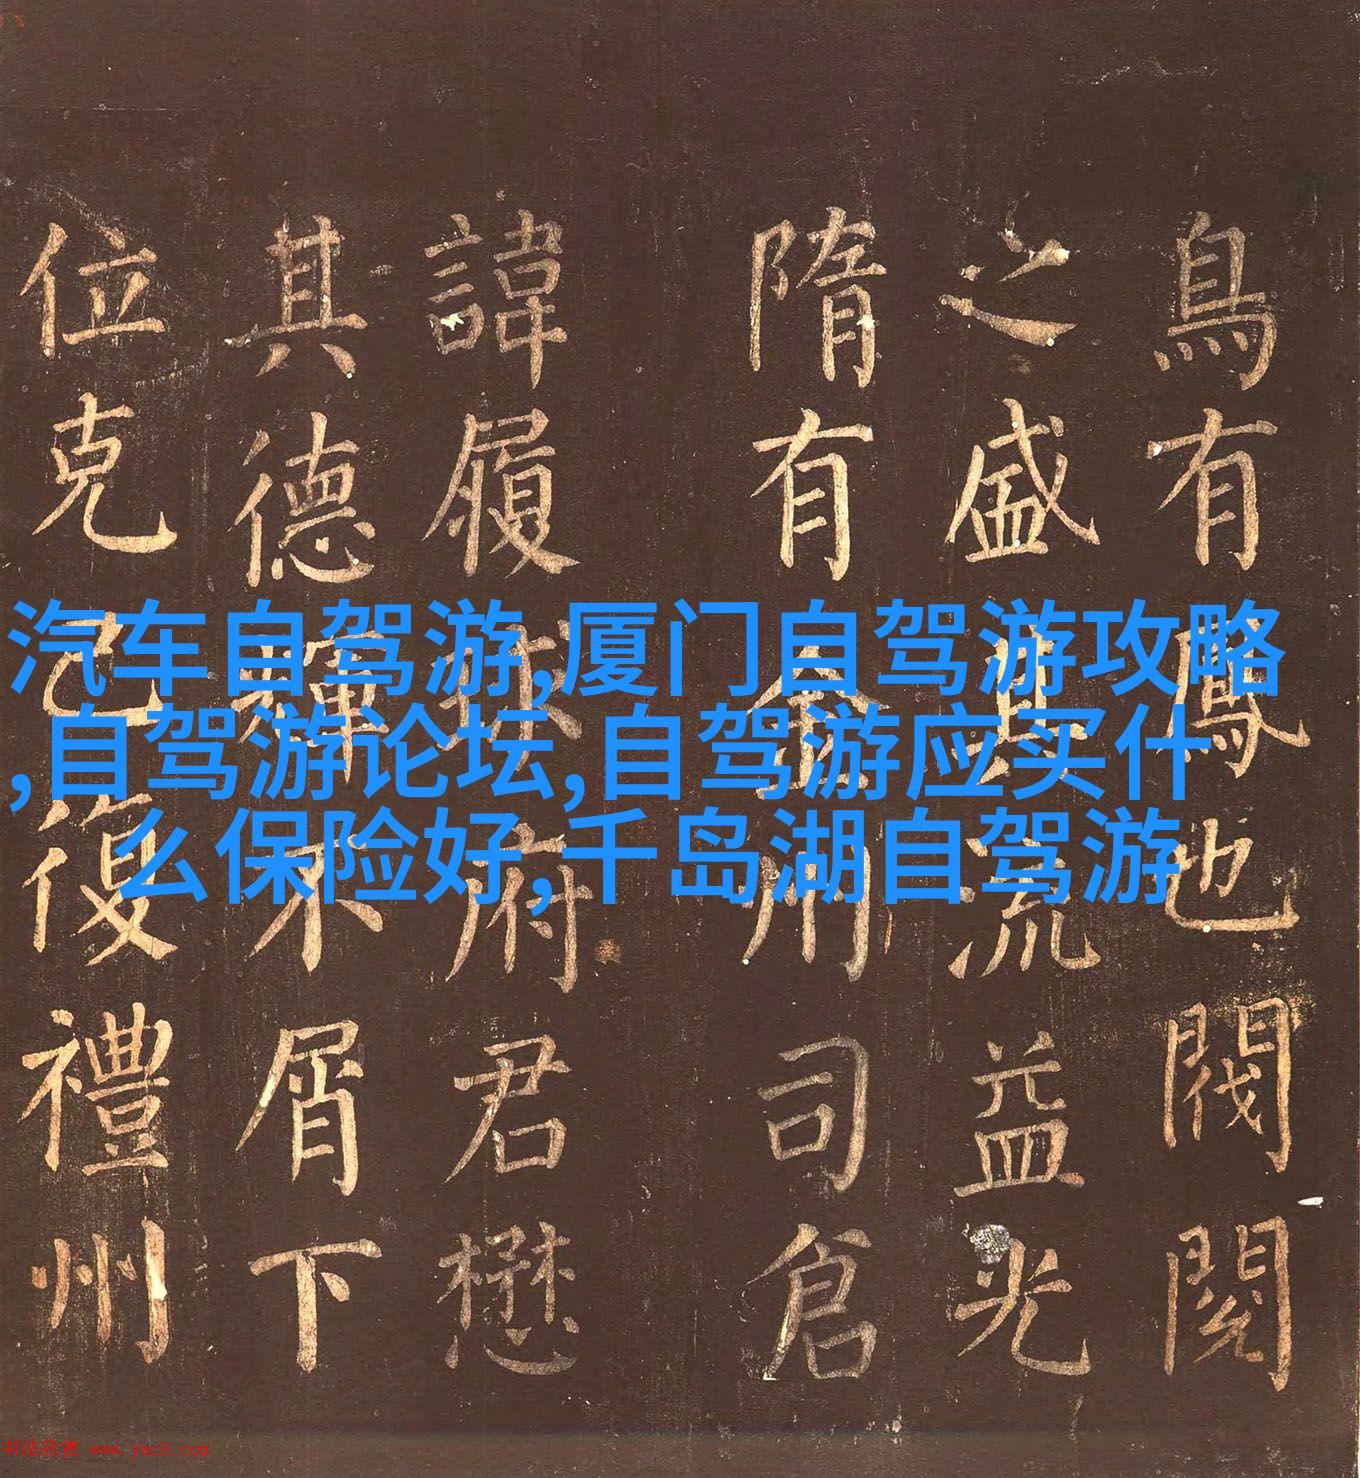 汽车自驾游,厦门自驾游攻略
,自驾游论坛,自驾游应买什
么保险好,千岛湖自驾游
鳥有鳳也閥閱
之盛流益光
隋有金州司倉
諱履府君懋
其德輝不屑下
位克己復禮州
书法欣赏 www.yac8.com